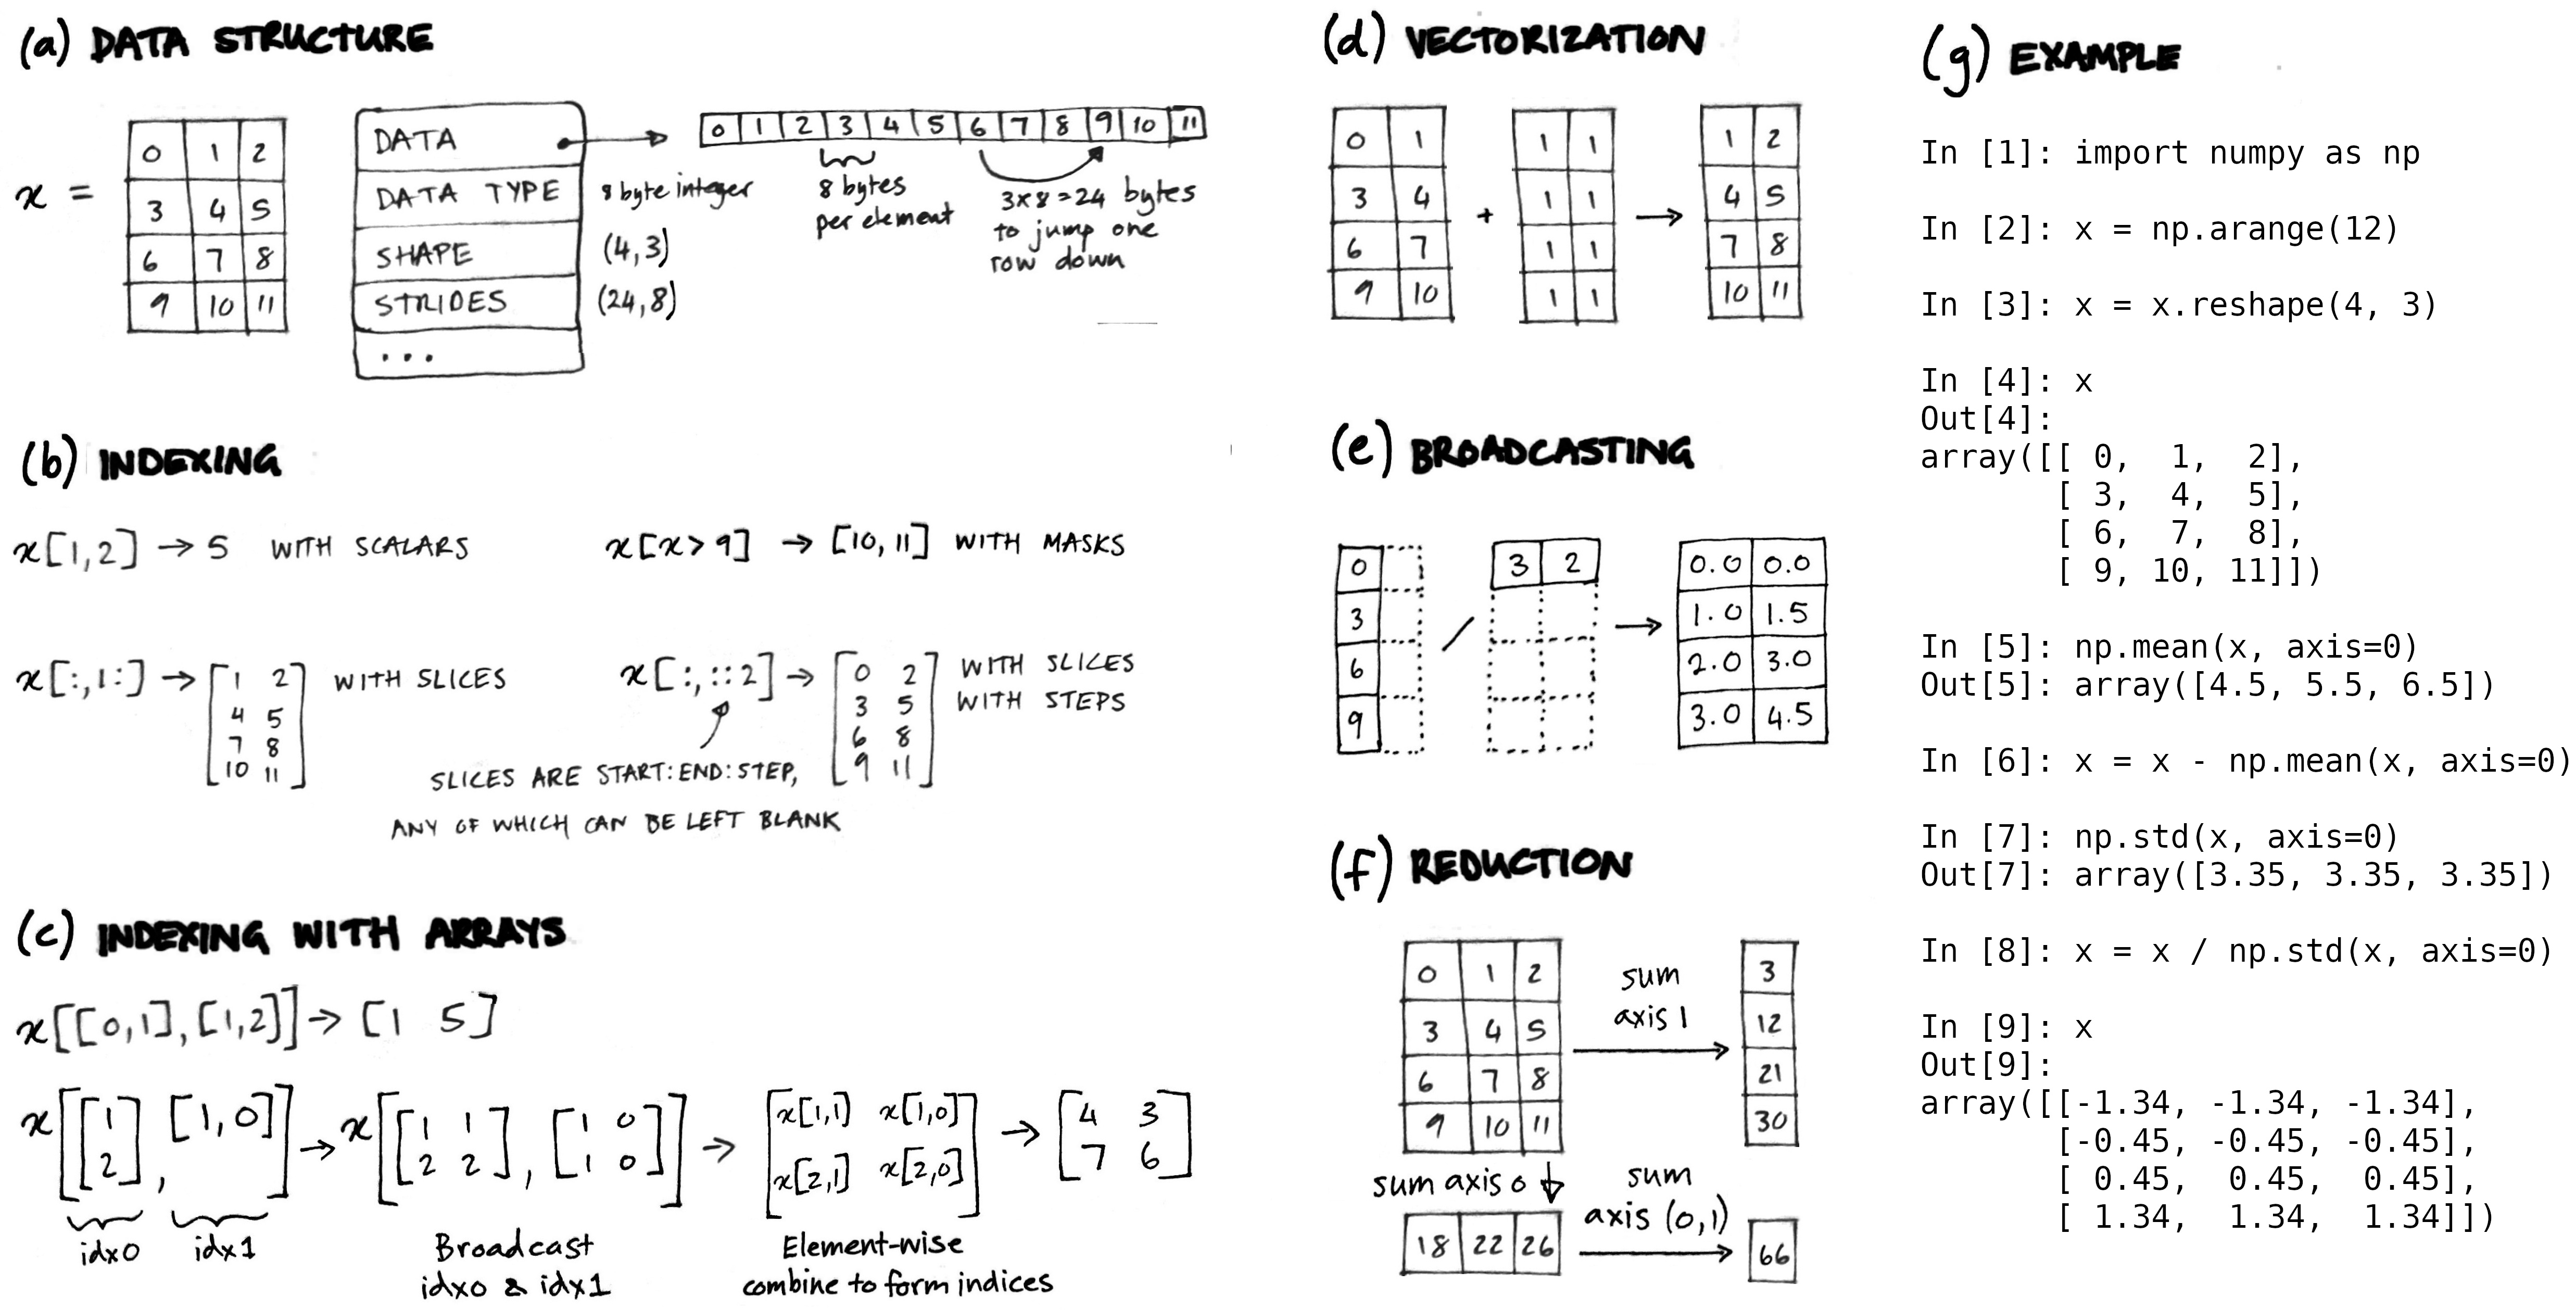 (a) DATA STRUCTURE
x =
0 1 2
3 4 5
6 7 8
9 10 11
DATA
DATA TYPE
SHAPE
STRIDES
...
8 byte integer
(4,3)
(24,8)
0 1 2 3 4 5 6 7 8 9 10 11
8 bytes
per element
3x8=24 bytes
to jump one
row down
(b) INDEXING
x[1,2] → 5 WITH SCALARS
x[x>9] → [10,11] WITH MASKS
x[:,1:] → WITH SLICES
1 2
4 5
7 8
10 11
x[:,::2] → WITH SLICES
WITH STEPS
0 2
3 5
6 8
9 11
SLICES ARE START:END:STEP,
ANY OF WHICH CAN BE LEFT BLANK
(c) INDEXING WITH ARRAYS
x[[0,1],[1,2]] → [1 5]
x[[1 2], [1,0]] → x[[1 1 2 2], [1 0 1 0]] → [x[1,1] x[1,0] x[2,1] x[2,0]] → [4 3 7 6]
idx0 idx1
Broadcast
idx0 & idx1
Element-wise
combine to form indices
(d) VECTORIZATION
0 1 1 1 1 2
3 4 + 1 1 → 4 5
6 7 1 1 7 8
9 10 1 1 10 11
(e) BROADCASTING
0 3 2 0.0 0.0
3 / → 1.0 1.5
6 2.0 3.0
9 3.0 4.5
(f) REDUCTION
0 1 2
3 4 5
6 7 8
9 10 11
sum
axis 1
3
12
21
30
sum axis 0
18 22 26
sum
axis (0,1)
66
(g) EXAMPLE
In [1]: import numpy as np
In [2]: x = np.arange(12)
In [3]: x = x.reshape(4, 3)
In [4]: x
Out[4]:
array([[ 0, 1, 2],
[ 3, 4, 5],
[ 6, 7, 8],
[ 9, 10, 11]])
In [5]: np.mean(x, axis=0)
Out[5]: array([4.5, 5.5, 6.5])
In [6]: x = x - np.mean(x, axis=0)
In [7]: np.std(x, axis=0)
Out[7]: array([3.35, 3.35, 3.35])
In [8]: x = x / np.std(x, axis=0)
In [9]: x
Out[9]:
array([[-1.34, -1.34, -1.34],
[-0.45, -0.45, -0.45],
[ 0.45, 0.45, 0.45],
[ 1.34, 1.34, 1.34]])